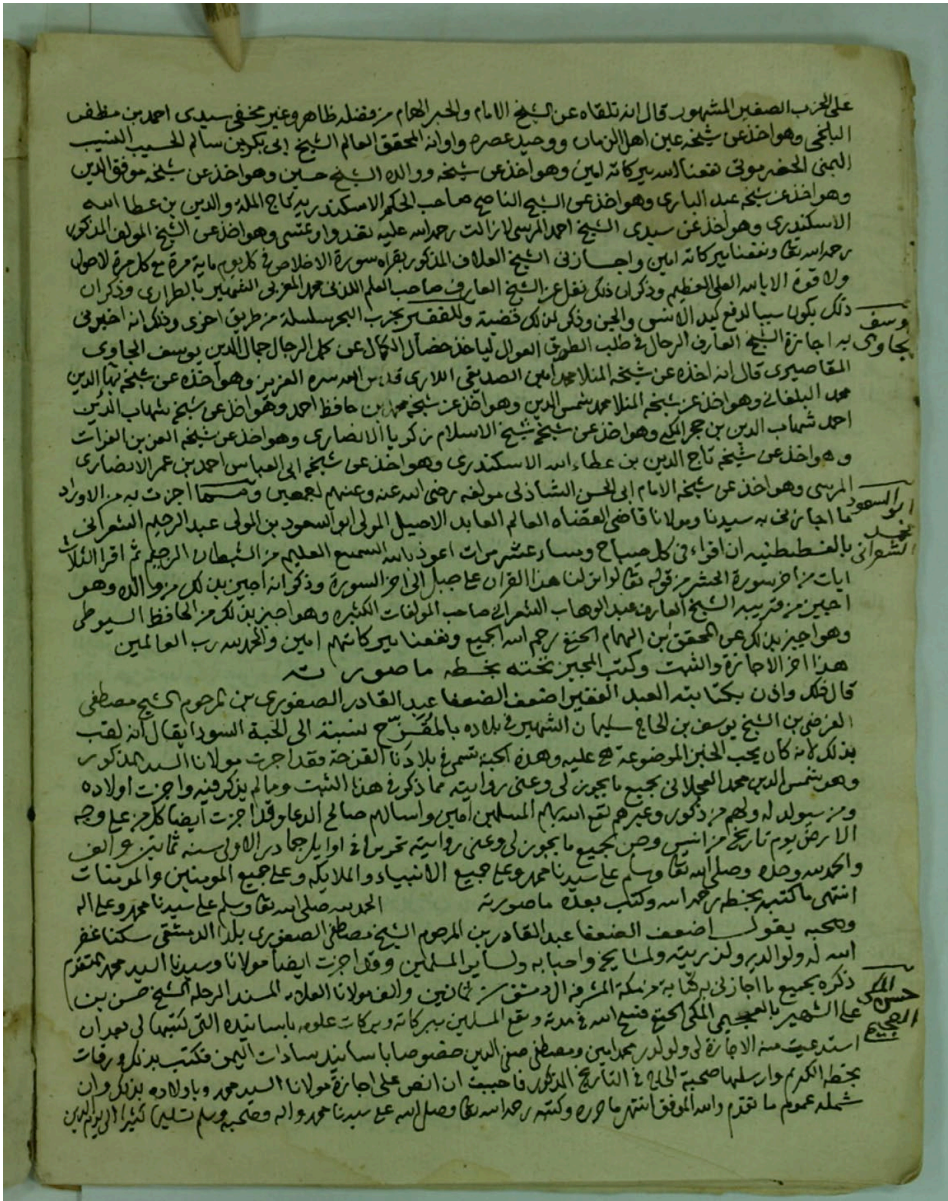 على الحزب الصغير المشهور قال انه تلقاه عن الشيخ الامام والحبر الهمام من فضله ظاهر وغير مخفي سيدي احمد بن مظفر
البلخي وهو اخذ عن شيخه عين اهل الزمان ووحيد عصره واوانه المحقق العالم الشيخ ابي بكر بن سالم الحسيب النسيب
اليمني الحضرموتي نفعنا الله ببركاته امين وهو اخذ عن شيخه ووالده الشيخ حسين وهو اخذ عن شيخه موفق الدين
وهو اخذ عن شيخه عبد الباري وهو اخذ عن الشيخ الناصح صاحب الحكم الاسكندرية تاج الملة والدين بن عطا الله
الاسكندري وهو اخذ عن سيدي الشيخ احمد المرسي لا زالت رحمة الله عليه تغدو او تمسي وهو اخذ عن الشيخ المولف المذكور
رحمه الله تعا ونفعنا ببركاته امين واجازني الشيخ العلاف المذكور بقراه سورة الاخلاص في كل يوم ماية مرة مع كل مرة لا حول
ولا قوة الا بالله العلي العظيم وذكر ان ذلك نقل عن الشيخ العارف صاحب العلم اللدني محمد المغربي الشهير بالطراري وذكر ان
ذلك يكون سببا لدفع كيد الانس والجن وذكر لذلك قصة وللفقير بحزب البحر سلسلة من طريق اخرى وذلك انه اخبرني
يوسف
الجاوي
به اجازة الشيخ العارف الرحال في طلب الطريق العوال لياخذ خصال الكمال عن كمل الرجال جمال الدين يوسف الجاوي
المقاصيري قال انه اخذه عن شيخه المنلا محمد امين الصديقي اللاري قدس الله سره العزيز وهو اخذه عن شيخه بهاء الدين
محمد وهو اخذ عن شيخه المنلا محمد شمس الدين وهو اخذ عن شيخه محمد بن حافظ احمد وهو اخذ عن شيخه شهاب الدين
احمد شهاب الدين بن حجر المكي وهو اخذ عن شيخه شيخ الاسلام زكريا الانصاري وهو اخذ عن شيخه العز بن الفرات
وهو اخذ عن شيخه تاج الدين بن عطاء الله الاسكندري وهو اخذ عن شيخه ابي العباس احمد بن عمر الانصاري
المرسي وهو اخذ عن شيخه الامام ابي الحسن الشاذلي مولفه رضي الله عنه وعنهم اجمعين ومما اجزت به من الاوراد
ابو السعود
الشعراني
ما اجازني به سيدنا ومولانا قاضي القضاه العالم العابد الاصيل المولى ابو السعود بن المولى عبد الرحيم الشعراني
بالقسطنطينيه ان اقراء في كل صباح ومساء عشر مرات اعوذ بالله السميع العليم من الشيطان الرجيم ثم اقرا الثلاث
ايات من اخر سورة الحشر من قوله تعا لو انزلنا هذا القران على جبل الى اخر السورة وذكر انه اجيز بذلك من والده وهو
اجيز من قريبه الشيخ العارف عبد الوهاب الشعراني صاحب المولفات الكثيره وهو اجيز بذلك من الحافظ السيوطي
وهو اجيز بذلك عن المحقق ابن الهمام الحنفي رحم الله الجميع ونفعنا ببركاتهم امين والحمد لله رب العالمين
هذا اخر الاجازة والثبت وكتب المجيز تحته بخطه ما صورته
قال ذلك واذن بكتابته العبد الفقير اضعف الضعفا عبد القادر الصفوري بن المرحوم الشيخ مصطفى
الفرضي بن الشيخ يوسف بن الحاج سليمان الشهير في بلاده بالمقزح نسبة الى الحبة السودا يقال انه لقب
بذلك لانه كان يحب الخبز الموضوعة هي عليه وهذه الحبة تسمى في بلادنا القزحة فقد اجزت مولانا السيد المذكور
وهو شمس الدين محمد العجلاني بجميع ما يجوز لي وعني روايته مما ذكر في هذا الثبت وما لم يذكر فيه واجزت اولاده
ومن سيولد له ولهم من ذكور وغيرهم نفع الله بهم المسلمين امين واسالهم صالح الدعا وقد اجزت ايضا كل من على وجه
الارض يوم تاريخ من انس وجن بجميع ما يجوز لي وعني روايته تحريرا في اوايل جمادى الاولى سنه ثمانين والف
والحمد لله وحده وصلى الله تعا وسلم على سيدنا محمد وعلى جميع الانبياء والملايكه وعلى جميع المومنين والمومنات
انتهى ما كتبه بخطه رحمه الله وكتب بعده ما صورته الحمد لله صلى الله تعا وسلم على سيدنا محمد وعلى اله
وصحبه يقول اضعف الضعفا عبد القادر بن المرحوم الشيخ مصطفى الصفوري بلدا الدمشقي سكنا غفر
الله له ولوالديه ولذريته ولمشايخه واحبابه ولساير المسلمين وقد اجزت ايضا مولانا وسيدنا السيد محمد المتقدم
حسن المكي
العجيمي
ذكره بجميع ما اجازني به كتابه من مكة المشرفة الى دمشق سنة ثمانين والف مولانا العلامه المسند الرحلة الشيخ حسن بن
علي الشهير بالعجيمي المكي الحنفي فسح الله في مدته ونفع المسلمين ببركاته وبركات علومه باسانيده التي كتبها لي بعد ان
استدعيت منه الاجازة لي ولولدي محمد امين ومصطفى صفي الدين خصوصا باسانيد سادات اليمن فكتب بذلك ورقات
بخطه الكريم وارسلها صحبة الحاج في التاريخ المذكور فاحببت ان انص على اجازة مولانا السيد محمد وباولاده بذلك وان
شمله عموم ما تقدم والله الموفق انتهى ما حرره وكتبه رحمه الله تعا وصلى الله على سيدنا محمد واله وصحبه وسلم تسليما كثيرا الى يوم الدين